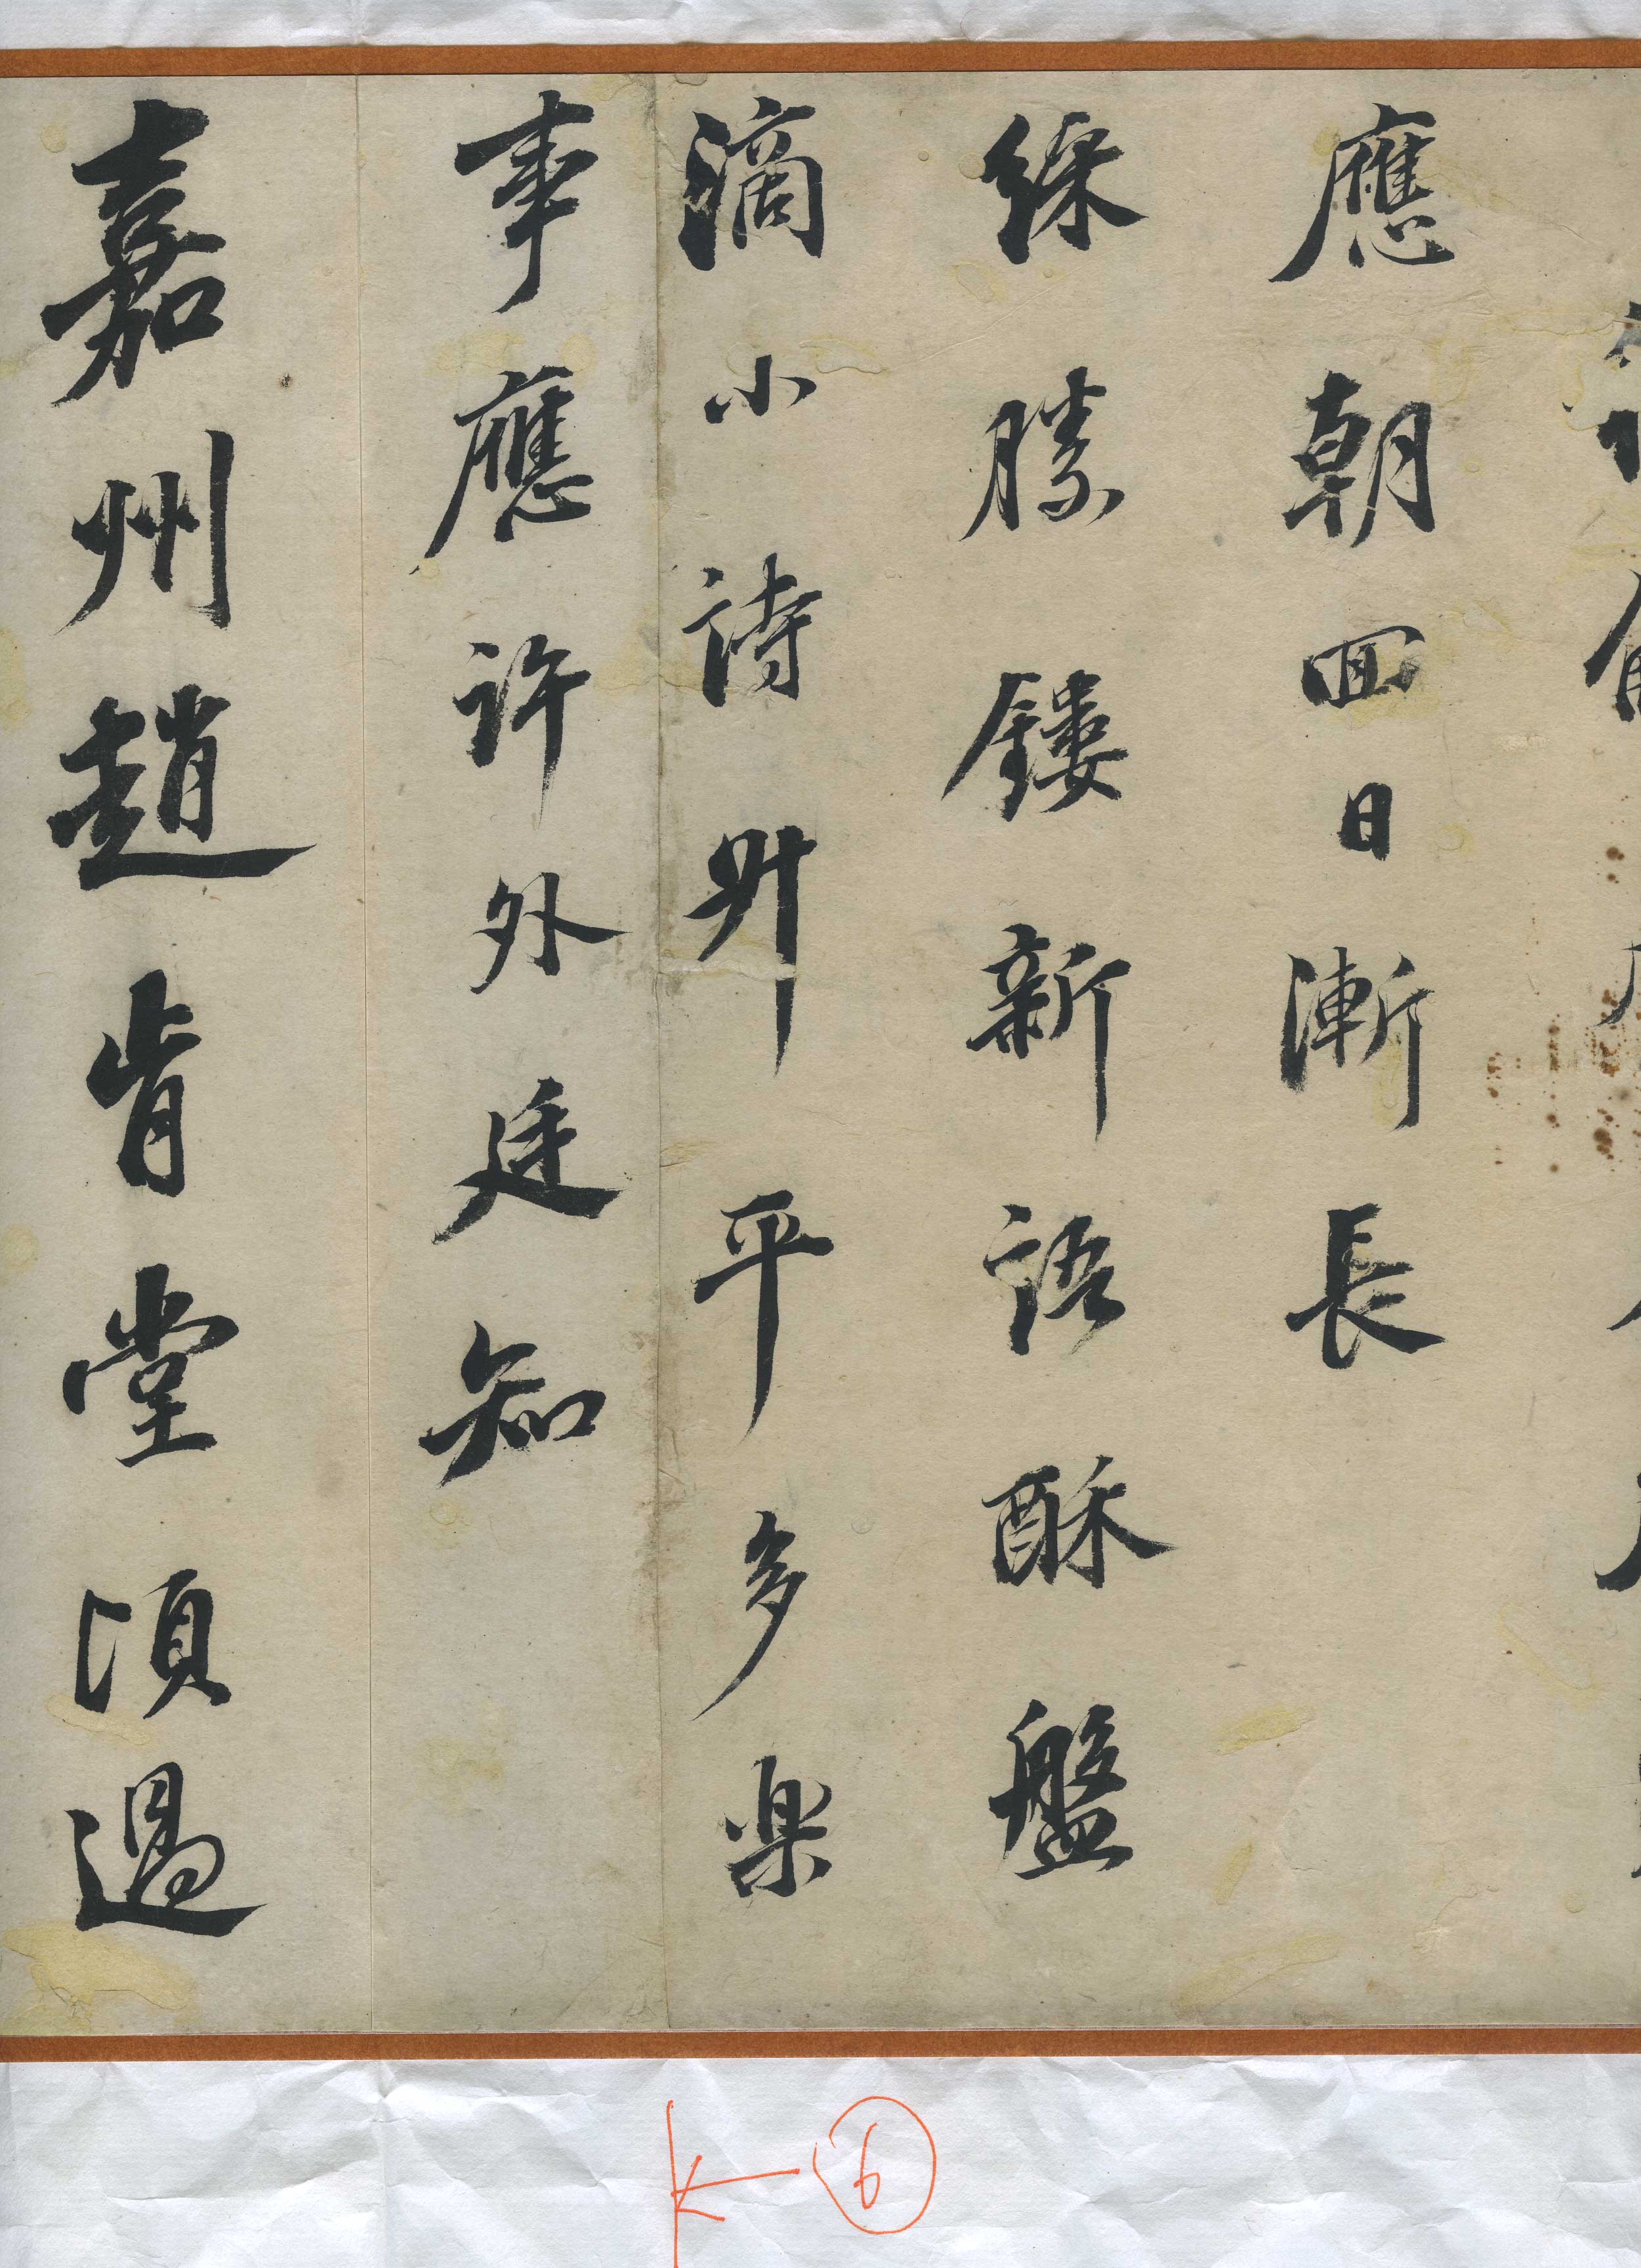 應朝回日漸長
綵勝鏤新語酥盤
滴小詩昇平多楽
事應許外廷知
嘉州趙肯堂頃過
6